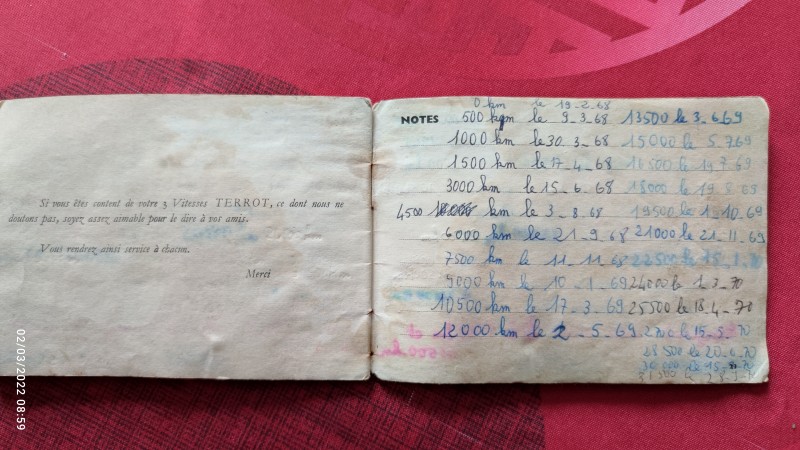 Si vous êtes content de votre 3 Vitesses TERROT, ce dont nous ne
doutons pas, soyez assez aimable pour le dire à vos amis.
Vous rendrez ainsi service à chacun.
Merci
0 km le 19-2-68
NOTES 500 km le 9-3-68 13500 le 3-6-69
1000 km le 30-3-68 15000 le 5-7-69
1500 km le 17-4-68 16500 le
3000 km le 15-6-68 18000 le
4500 km le 3-8-68 19500 le 1-10-69
6000 km le 21-9-68 21000 le 21-11-69
7500 km le 11-11-68 22500 le
9000 km le 10-1-69 24000 le 1-3-70
10500 km le 17-3-69 25500 le 18-4-70
12000 km le 2-5-69 le 15-5-70
28500 le 20-6-70
30000 le 15
02/03/2022 08:59